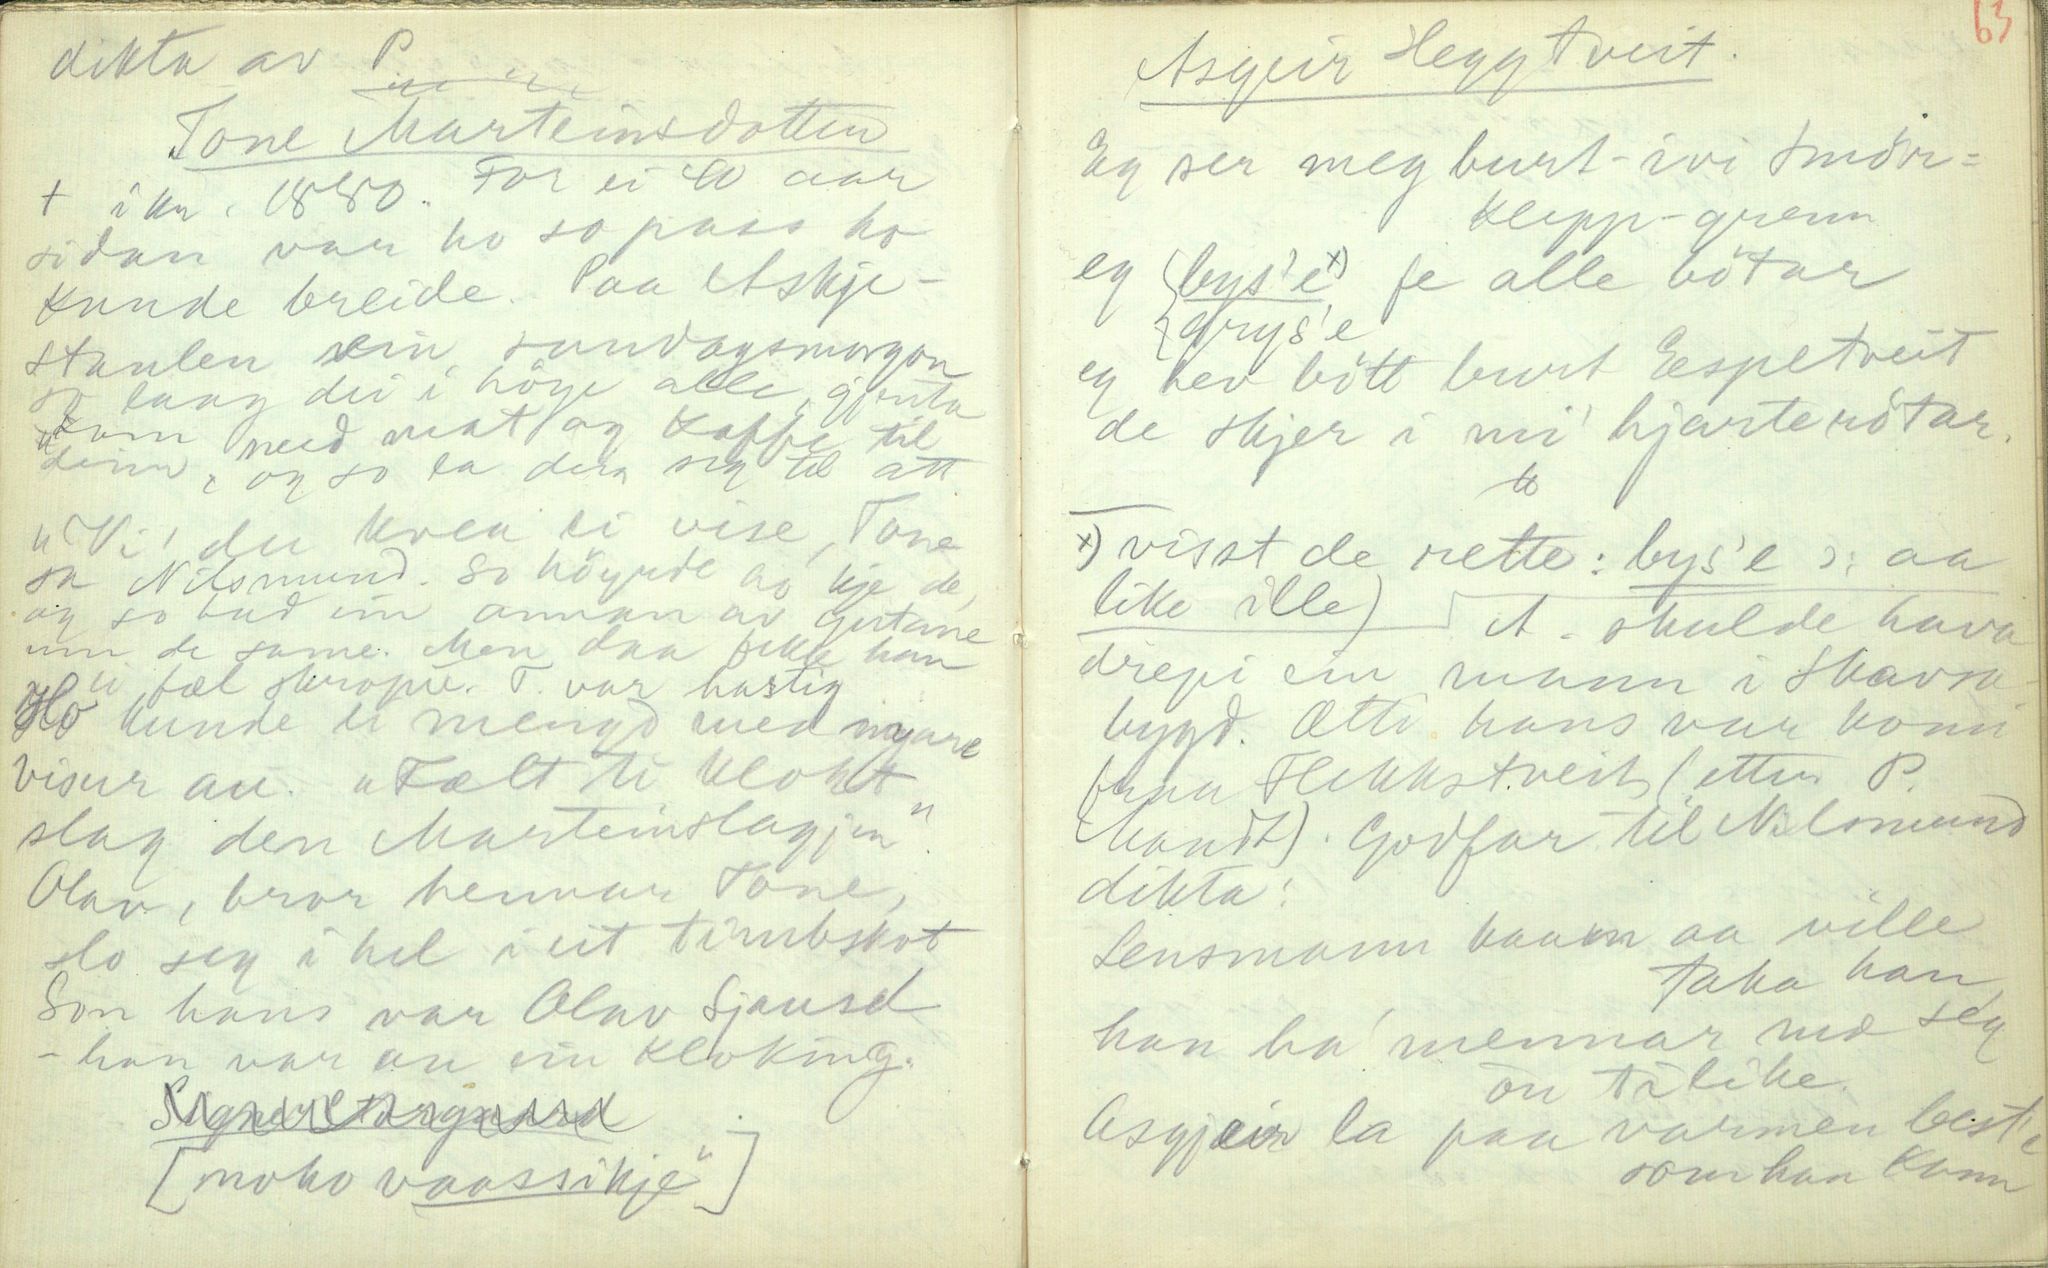 dikta av P
Tone Marteinsdotter
+ ikr. 1880. For ei 40 aar
sidan var ho so pass ho
kunde breide. Paa Askje-
staulen ein sundagsmorgon
so laag dei i höge alle, gjenta
kom med mat og kaffe til
deim, og so la dei seg til att
"Vi' du kvea ei vise, Tone
sa Nilsmund. So höyrde ho kje de,
og so bad ein annan av gutane
um de same. Men daa fekk han
ei fæl skropu. T. var hastig
Ho kunde ei mengd med nyare
visur au. "Fælt ti klokt
slag den Marteinslagjen"
Olav, bror hennar Tone,
slo seg i hel i eit timbskot
Son hans var Olav Sjausæ
- han var au ein kloking.
[moko vaassikje"]
63
Asgeir Heggtveit.
Eg ser meg burt-ivi Smör=
klepp-grenn
eg bys'e x) fe alle bötar
grys'e
eg hev bött burt Espetveit
de skjer i mi' hjarterötar.
x) visst de rette: bys'e ɔ: aa
like ille) A. skulde hava
drepi ein mann i Skavsæ-
bygd. Ætti hans var komi
fraa Flekkstveit (etter P.
Mandt). Godfar til Nilsmund
dikta:
Lensmann kaam aa ville
taka han,
han ha' mennar md seg
ön tilike.
Asgjeir la paa varmen best'e
som han kann